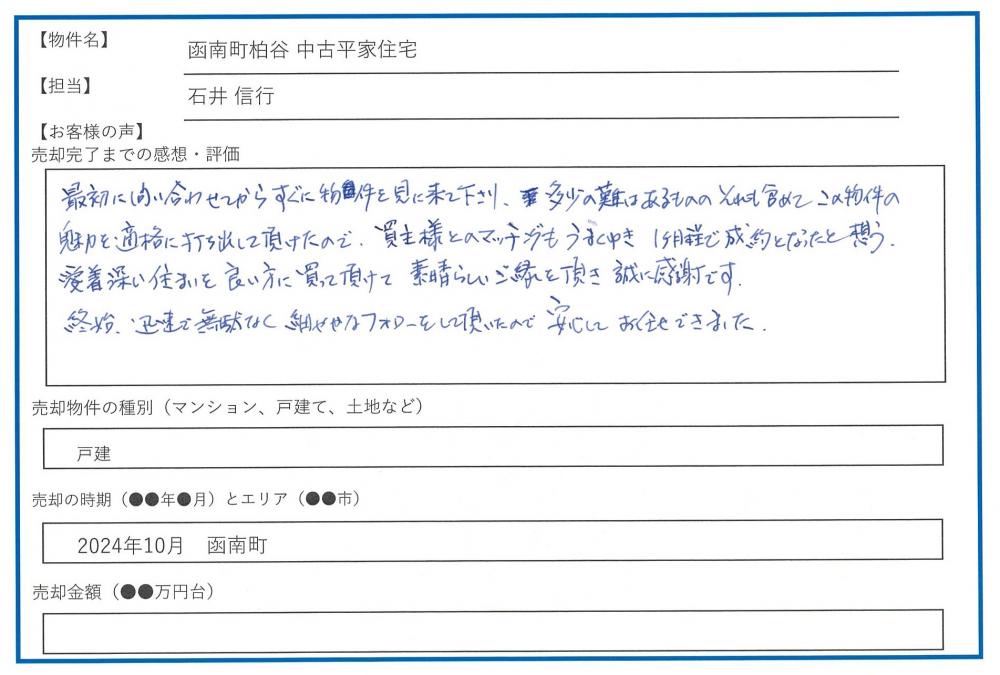 【物件名】
函南町柏谷 中古平家住宅
【担当】
石井 信行
【お客様の声】
売却完了までの感想・評価
最初に問い合わせてからすぐに物件を見に来て下さり、多少の難はあるもののそれも含めてこの物件の
魅力を適格に打ち出して頂けたので、買主様とのマッチングもうまくゆき 1ヶ月程で成約となったと想う。
愛着深い住まいを良い方に買って頂けて 素晴らしいご縁を頂き 誠に感謝です。
終始、迅速で無駄なく細やかなフォローをして頂いたので 安心して お任せできました。
売却物件の種別（マンション、戸建て、土地など）
戸建
売却の時期（●●年●月）とエリア（●●市）
2024年10月　函南町
売却金額（●●万円台）